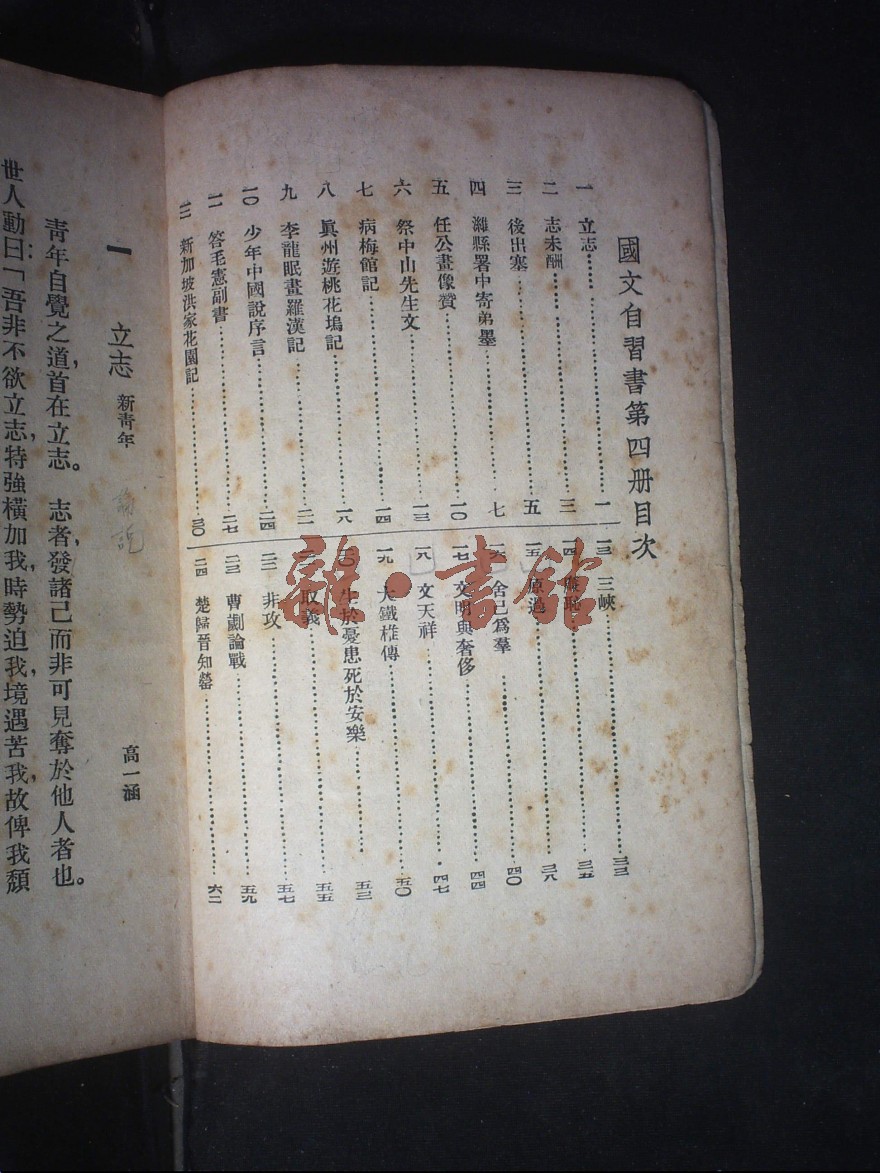 國文自習書第四册目次
一 立志 一
二 志未酬 三
三 後出塞 五
四 濰縣署中寄弟墨 七
五 任公畫像贊 一〇
六 祭中山先生文 一三
七 病梅館記 一四
八 眞州遊桃花塢記 一八
九 李龍眠畫羅漢記 二一
一〇 少年中國說序言 二四
一一 答毛憲副書 二七
一二 新加坡洪家花園記 三〇
一三 三峽 三三
一四 廉恥 三五
一五 原過 三八
一六 舍己爲羣 四〇
一七 文明與奢侈 四四
一八 文天祥 四七
一九 大鐵椎傳 五〇
二〇 生於憂患死於安樂 五三
二一 取義 五五
二二 非攻 五七
二三 曹劌論戰 五九
二四 楚歸晉知罃 六二
一 立志 新靑年 高一涵
論說
靑年自覺之道,首在立志。志者,發諸己而非可見奪於他人者也。
世人動曰:「吾非不欲立志,特強橫加我,時勢迫我,境遇苦我,故俾我頹
雜·書館